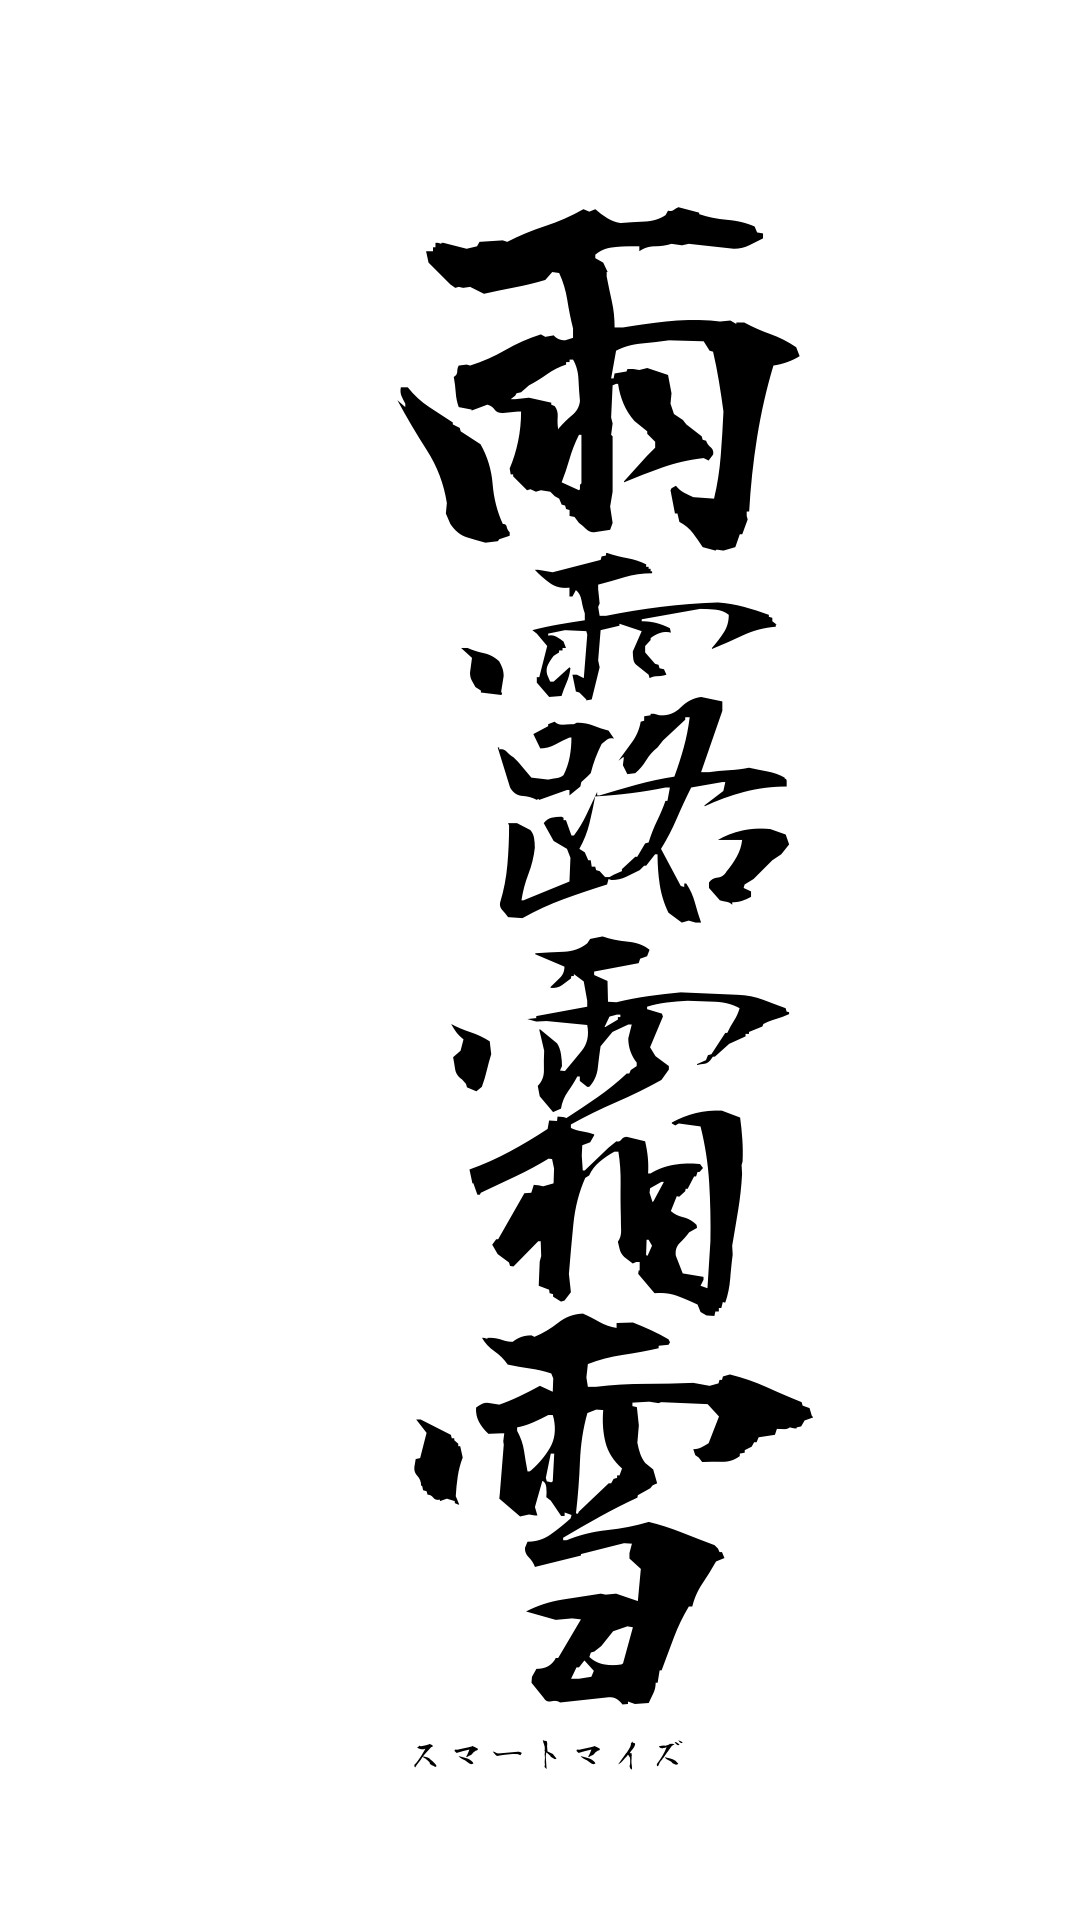 雨露霜雪
スマートマイズ